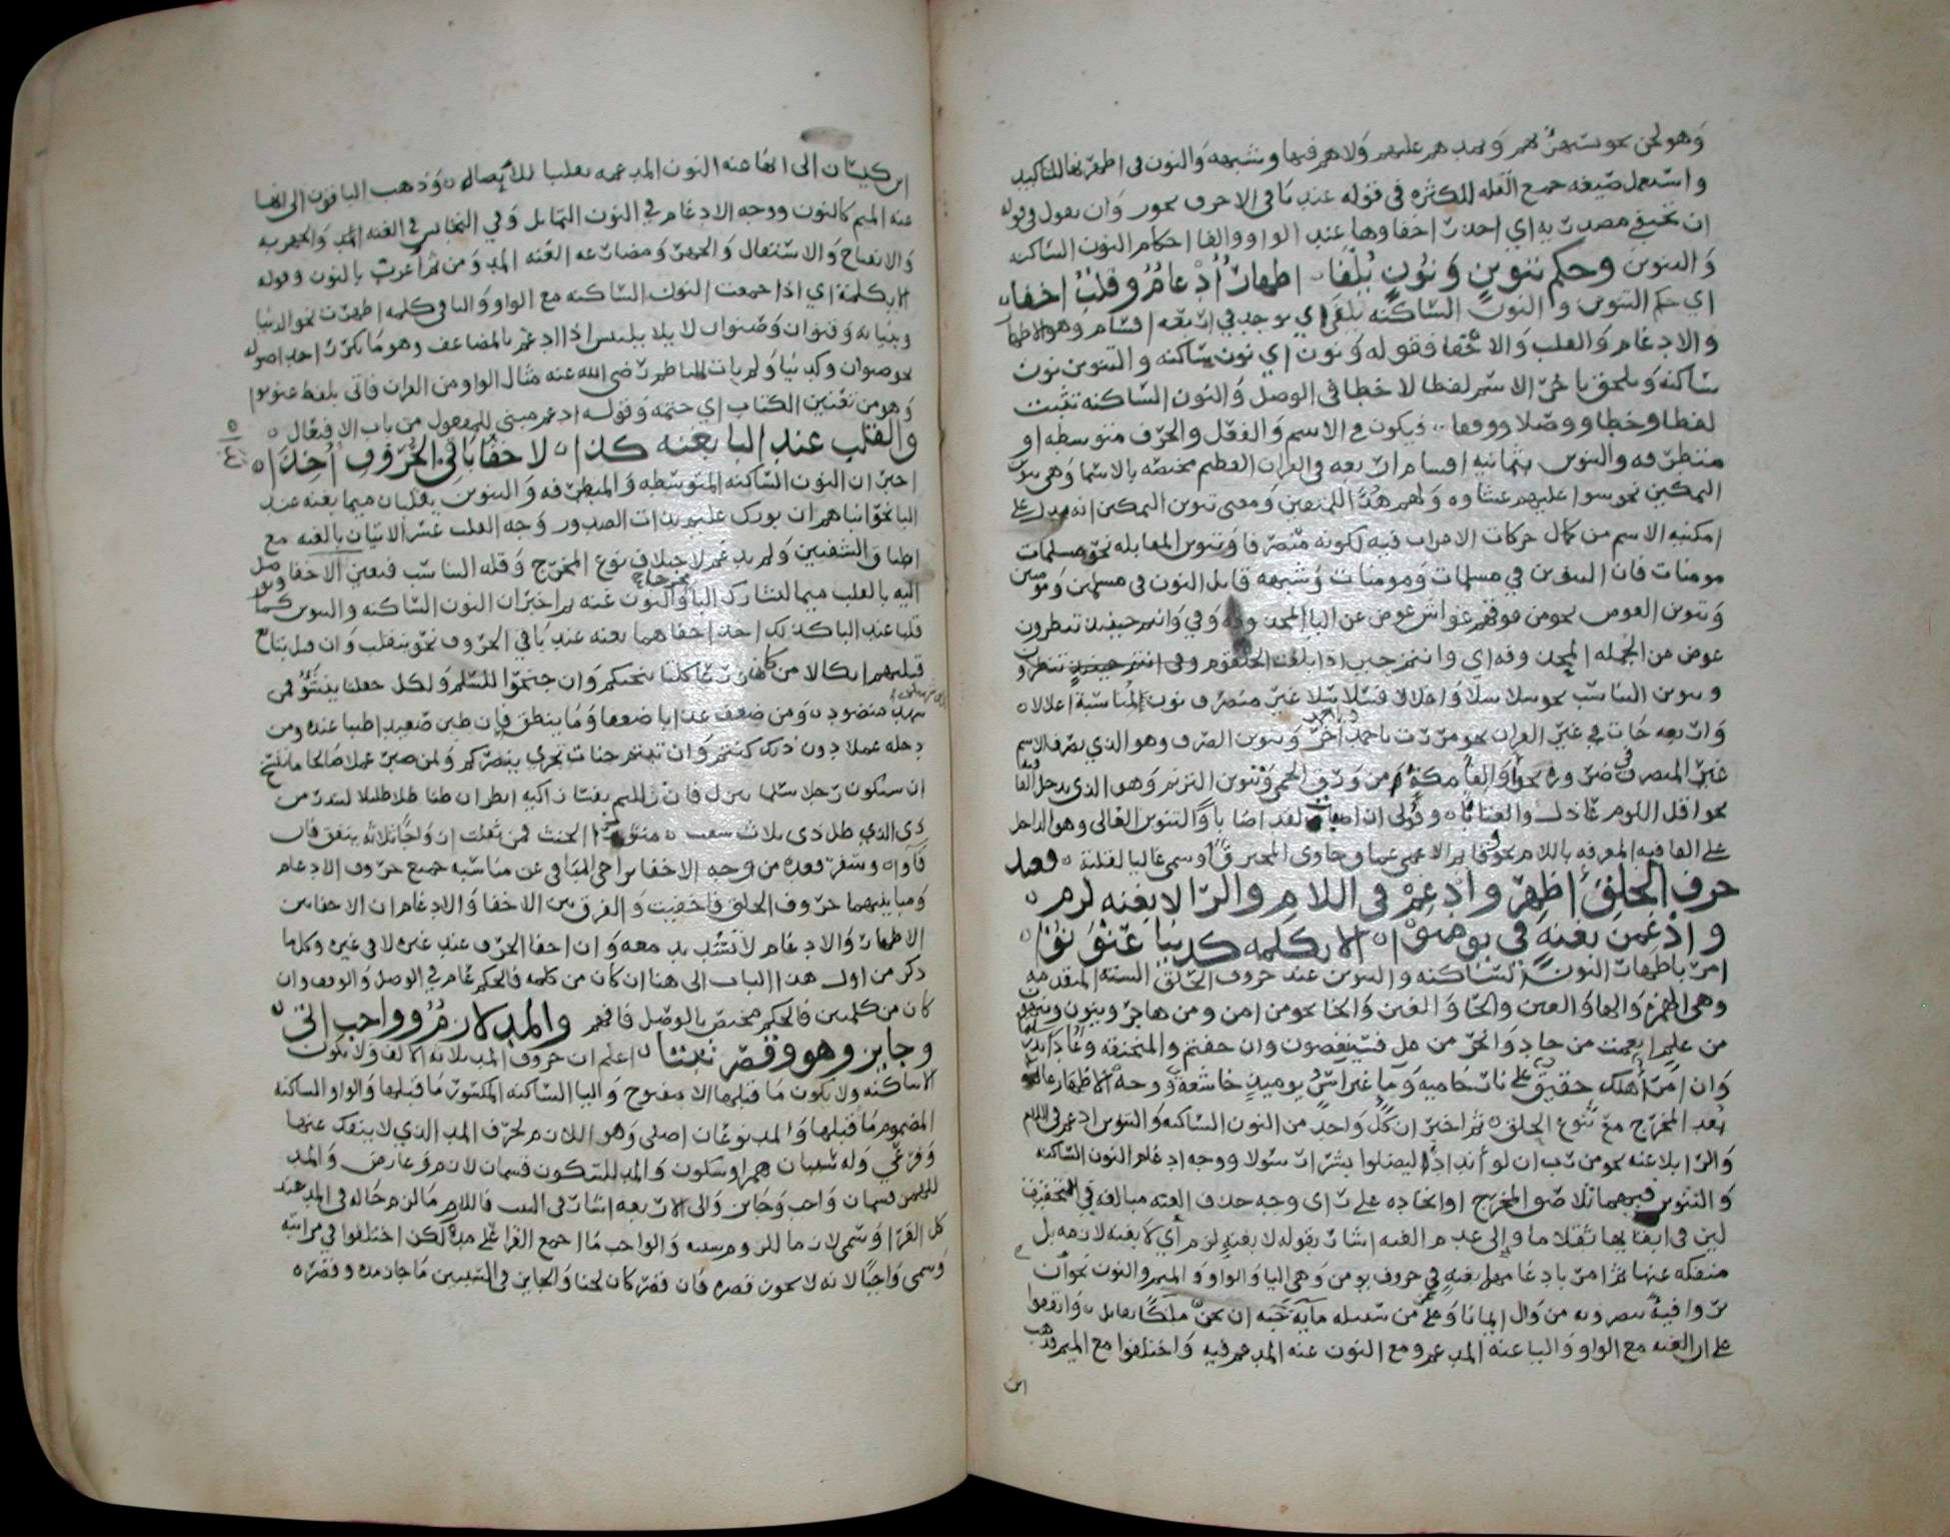 وهو لحن نحو سيهزم وعليهم ولا هم فيها وشبهه والنون في اظهرنها للتاكيد
واستعمل صيغه جمع القله للكثره في قوله عند باقي الاحرف يجوز وان يقول في قوله
ان تختفي اي احذر اخفاوها عند الواو والفا احكام النون الساكنه
والتنوين وحكم تنوين ونون يلفا اظهار ادغام وقلب اخفا
اي حكم التنوين والنون الساكنه يلفى اي يوجد في اربعه اقسام وهو الاظهار
والادغام والقلب والاخفا فقوله ونون اي نون ساكنه والتنوين نون
ساكنه يلحق باخر الاسم لفظا لا خطا في الوصل والنون الساكنه تثبت
لفظا وخطا ووصلا ووقفا فيكون في الاسم والفعل والحرف متوسطه او
متطرفه والتنوين ثمانيه اقسام اربعه في القران العظيم مختصه بالاسما وهي تنوين
التمكين نحو سوا عليهم غشاوه ولهم هدى للمتقين ومعنى تنوين التمكين انه يدل على
امكنيه الاسم من كمال حركات الاعراب فيه لكونه منصرفا وتنوين المقابله نحو مسلمات
مومنات فان التنوين في مسلمات ومومنات وشبهه قابل النون في مسلمين ومومنين
وتنوين العوض نحو من فوقهم غواش عوض عن اليا المحذوفه وفي وانتم حينيذ تنظرون
عوض عن الجمله المحذوفه اي وانتم حين اذا بلغت الحلقوم وفي انتم حينيذ تنظرون
وتنوين التناسب نحو سلاسلا واغلالا فسلاسلا غير منصرف نون لمناسبة اغلالا
واربعه جات في غير القران نحو مررت باحمد اخر وتنوين الصرف وهو الذي يصرف الاسم
غير المنصرف ضروره نحو اوالفا مكة من ورق الحمى وتنوين الترنم وهو الذي يدخل القافيه
نحو اقل اللوم عاذل والعتابا وقولي ان اصبت لقد اصابا والتنوين الغالي وهو الداخل
على القافيه المعرفه باللام نحو وقاتم الاعماق خاوي المخترق وسمي غاليا لقلته فعند
حرف الحلق اظهر وادغم في اللام والرا لا بغنه لزم
وادغمن بغنه في يومن الا بكلمه كدنيا عنونوا
امر باظهار النون الساكنه والتنوين عند حروف الحلق السته المتقدمه
وهي الهمزه والها والعين والحا والغين والخا نحو من امن ومن هاجر وينون
من عليم انعمت من حاد وانحر من عل فسينغضون وان خفتم والمنخنقه
وان امرؤ هلك حقيق على نار حاميه وما غير اسن يوميذ خاشعه ووجه الاظهار
بعد المخرج مع تنوع الحلق ثم اخبر ان كل واحد من النون الساكنه والتنوين ادغم في اللام
والرا بلا غنه نحو من رب ان لو اندادا ليضلوا بشرا رسولا ووجه ادغام النون الساكنه
والتنوين فيهما تلاصق المخرج او اتحاده على راي وجه حذف الغنه مبالغه في التخفيف
لان في ابقايها ثقلا ما والى عدم الغنه اشار بقوله لا بغنه لزم اي لا بغنه لازمه بل
منفكه عنها ثم امر بادغامهما بغنه في حروف يومن وهي اليا والواو والميم والنون نحو ان
يروا فية ينصرونه من وال ايمانا وعلى من سنبله ماية حبه ان نحن ملكا نقاتل واتفقوا
على ان الغنه مع الواو واليا غنه المدغم ومع النون غنه المدغم فيه واختلفوا مع الميم فذهب
ابن
ابن كيسان الى انها غنه النون المدغمه تغليبا للاصاله وذهب الباقون الى انها
غنه الميم كالنون ووجه الادغام في النون التماثل وفي التجانس في الغنه الميم والجهريه
والانفتاح والاستفال والجهر ومضارعه الغنه المد ومن ثم اعربت بالنون وقوله
الا بكلمة اي اذا جمعت النون الساكنه مع الواو واليا في كلمه اظهرت نحو الدنيا
وبنيانه وقنوان وصنوان ليلا يلتبس اذا ادغم بالمضاعف وهو ما تكرر احد اصوله
نحو صوان وكدنيا ولم يات للناظم رضي الله عنه مثال الواو من القران فاتى بلفظ عنونوا
وهو من تعنين الكتاب اي ختمه وقوله ادغم مبني للمفعول من باب الافتعال
والقلب عند البا بغنه كذا لاخفا باقي الحروف اخذا
اخبر ان النون الساكنه المتوسطه والمتطرفه والتنوين يقلبان ميما بغنه عند
البا نحو انباهم ان بورك عليم بذات الصدور وجه القلب عسر الاتيان بالغنه مع
اطباق الشفتين ولم يدغم لاختلاف نوع المخرج وقله التناسب فتعين الاخفا وتوصل
اليه بالقلب ميما لتشارك البا مخرجا والنون غنه ثم اخبر ان النون الساكنه والتنوين كما
قلبا عند البا كذلك اخذ اخفاهما بغنه عند باقي الحروف نحو ينقلب وان قيل بتابع
قبلتهم انكالا من كان زرعا كلتا ينجيكم وان جنحوا للسلم ولكل جعلنا ينشوا فمن
منضود ومن ضعف عذابا ضعفا وما ينطق فان طبن صعيدا طيبا عنده ومن
دخله عملا دون ذلك كنتم وان تبتم جنات تجري ينصركم ولمن صبر عملا صالحا ما ننسخ
ان سيكون رجلا سلما ينزل فان زللتم نفسا زاكيه انظر ان ظنا ظلا ظليلا لينذر من
ذي الذي ظل ذي ثلاث شعب منثورا الحنث فمن ثقلت ان واجا ثلاثه ينفق فان
فاوا وسفر قعده من ووجه الاخفا تراخي الباقي عن مناسبه جميع حروف الادغام
ومباينتهما حروف الحلق فاخفيت والفرق بين الاخفا والادغام ان الاخفا بين
الاظهار والادغام لا تشديد معه وان اخفا الحرف عند غيره لا في غيره وكلما
ذكر من اول هذا الباب الى هنا ان كان من كلمه فالحكم عام في الوصل والوقف وان
كان من كلمتين فالحكم مختص بالوصل فافهم والمد لازم وواجب اتى
وجايز وهو وقصر ثبتا اعلم ان حروف المد ثلاثه الالف ولا تكون
الا ساكنه ولا يكون ما قبلها الا مفتوح واليا الساكنه المكسور ما قبلها والواو الساكنه
المضموم ما قبلها والمد نوعان اصلي وهو اللازم لحرف المد الذي لا ينفك عنها
وفرعي وله سببان همز او سكون والمد للسكون قسمان لازم وعارض والمد
للهمز قسمان واجب وجايز والى الاربعه اشار في البيت فاللازم ما لزم حاله في المد عند
كل القرا وسمي لازما للزوم سببه والواجب ما اجمع القرا على مده لكن اختلفوا في مراتبه
وسمي واجبا لانه لا يجوز قصره فان قصر كان لحنا والجايز في السببين ما جاز مده وقصره